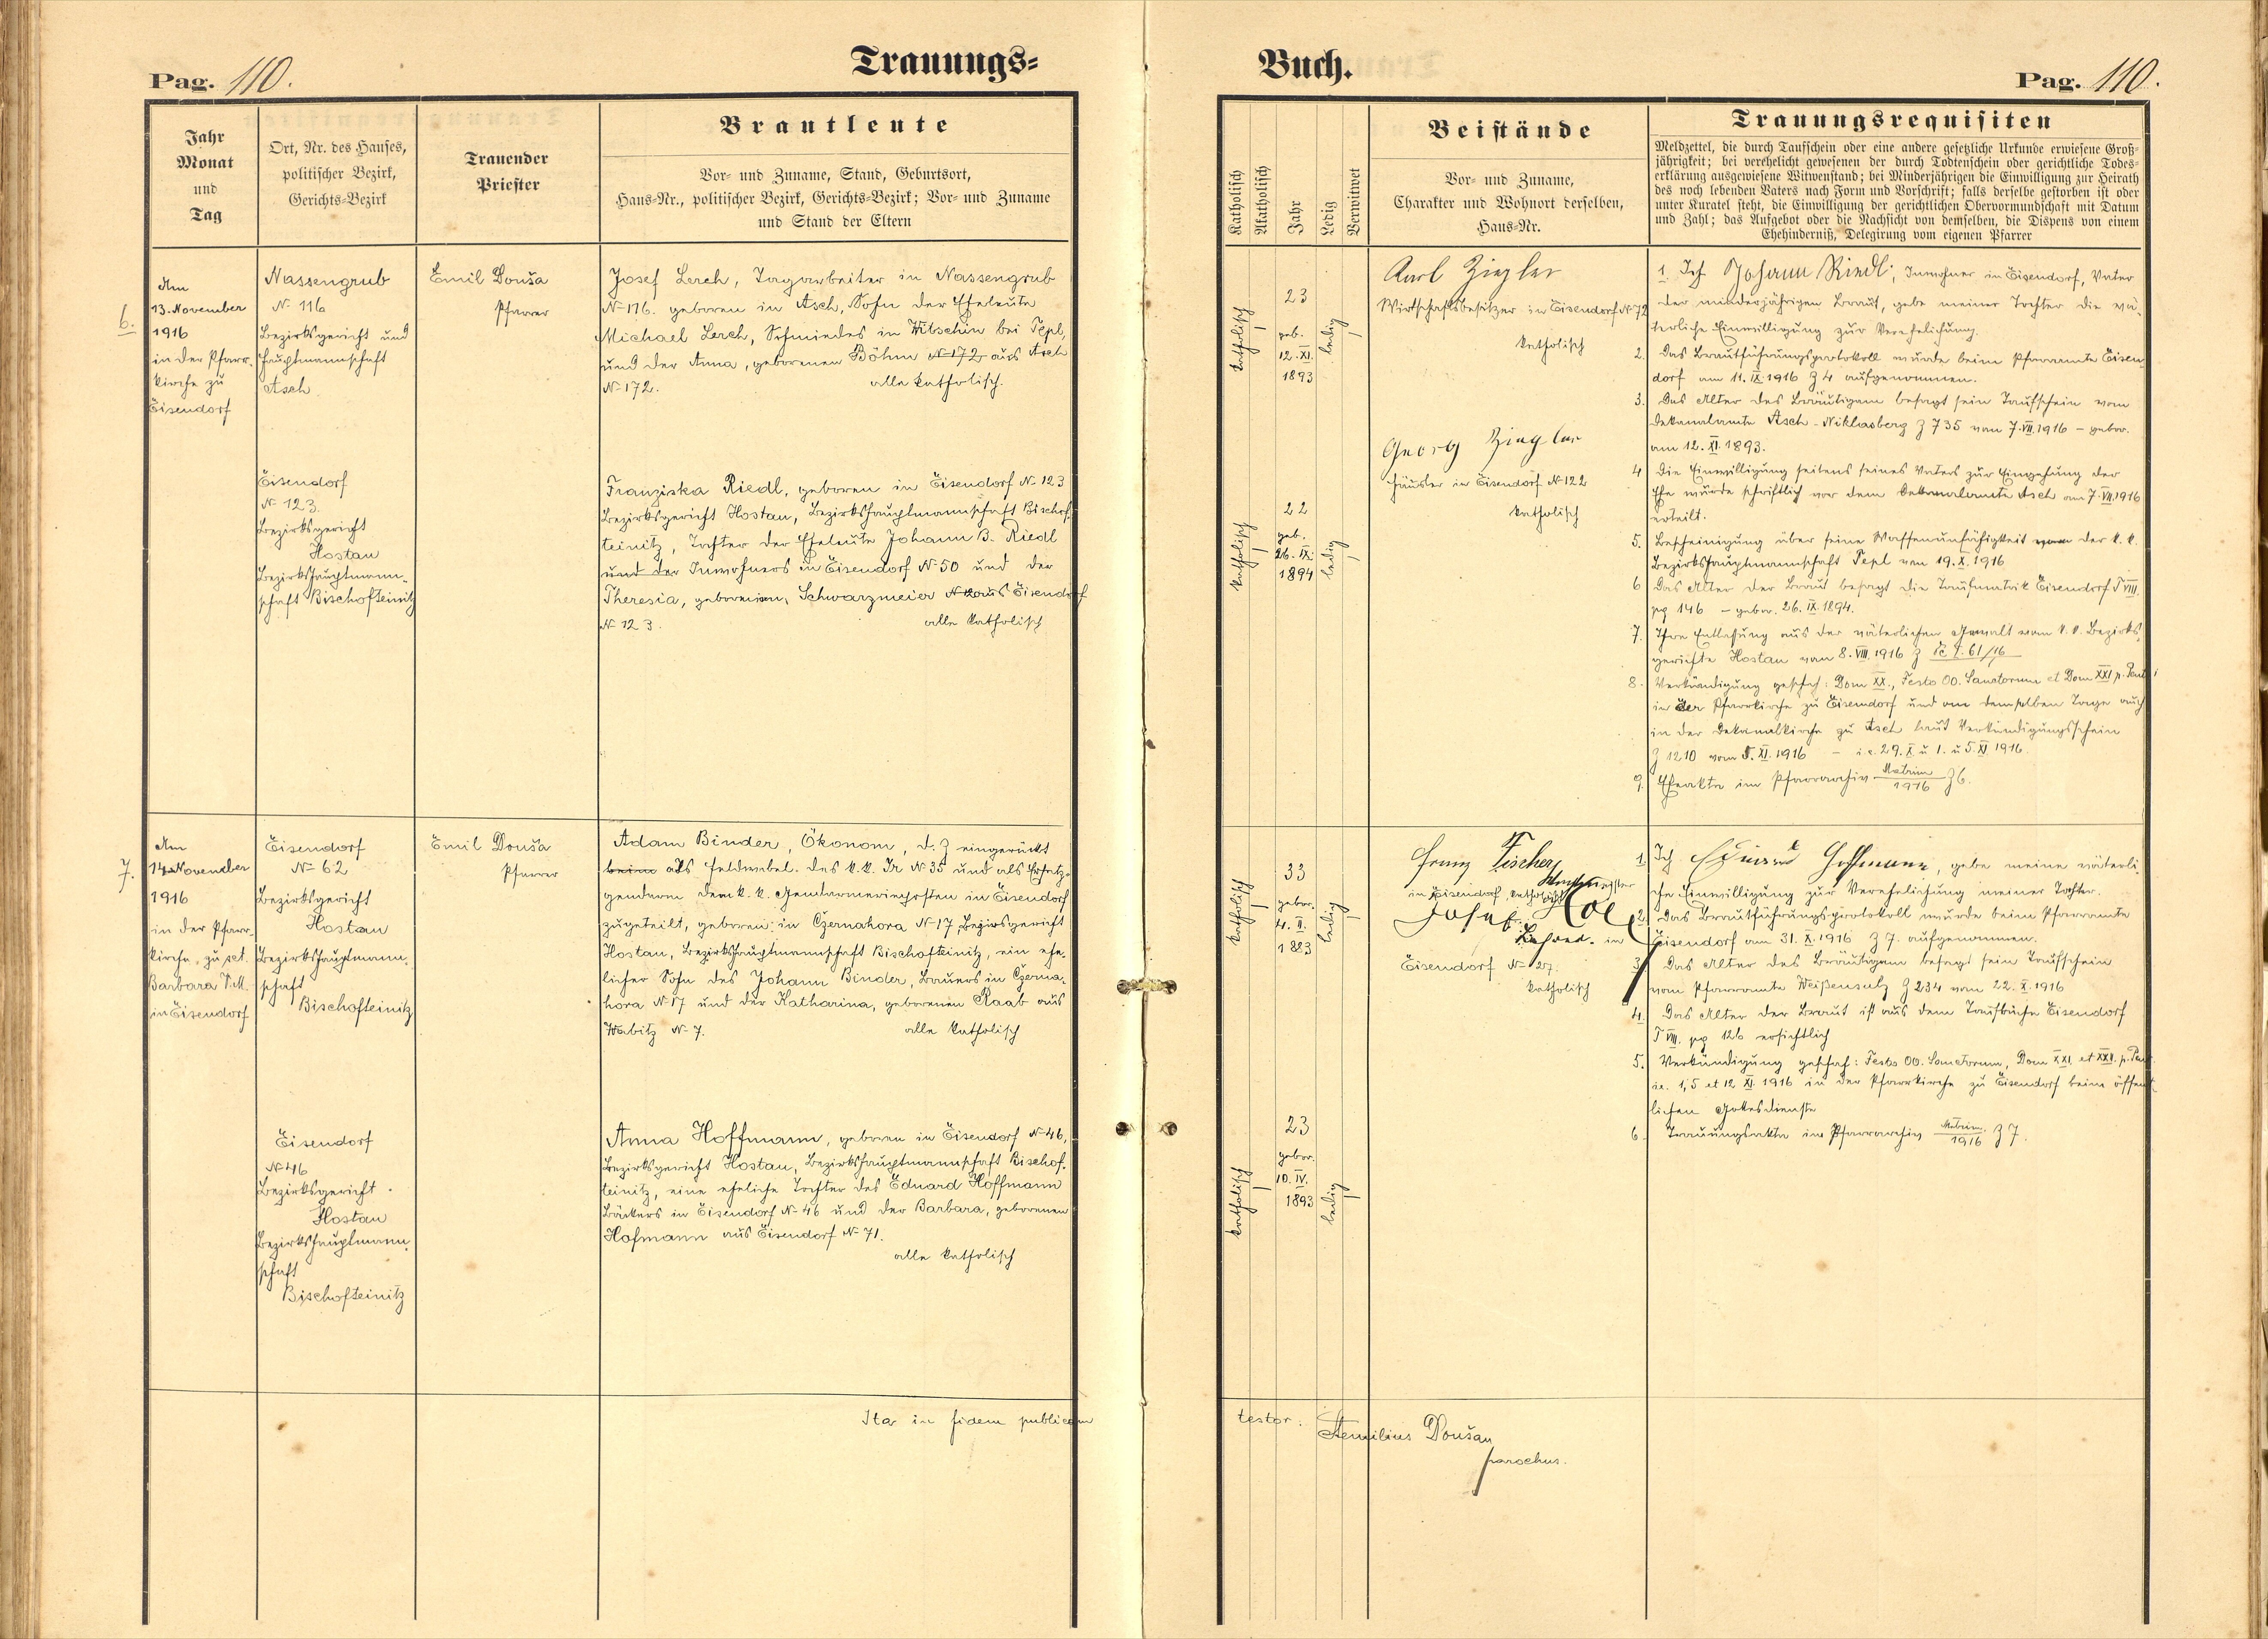 Pag. 110.
Trauungs=
Jahr
Monat
und
Tag
Ort, Nr. des Hauses,
politischer Bezirk,
Gerichts=Bezirk
Trauender
Priester
Brautleute
Vor= und Zuname, Stand, Geburtsort,
Haus=Nr., politischer Bezirk, Gerichts=Bezirk; Vor= und Zuname
und Stand der Eltern
6.
Am
13. November
1916
in der Pfarr-
kirche zu
Eisendorf
Nassengrub
N= 116
Bezirksgericht und
Hauptmannschaft
Asch
Emil Douša
Pfarrer
Josef Lerch, Tagarbeiter in Nassengrub
N= 116. geboren in Asch, Sohn der Eheleute
Michael Lerch, Schmiedes in Habschin bei Tepl,
und der Anna, geborenen Böhm N= 172 aus Asch
N= 172. alle katholisch.
Eisendorf
N= 123.
Bezirksgericht
Hostau
Bezirkshauptmann-
schaft Bischofteinitz
Franziska Riedl, geboren in Eisendorf N= 123
Bezirksgericht Hostau, Bezirkshauptmannschaft Bischof-
teinitz, Tochter der Eheleute Johann B. Riedl
und der Inwohners in Eisendorf N= 50 und der
Theresia, geborenen, Schwarzmeier aus Eisendorf
N= 123. alle katholisch
7.
Am
14. November
1916
in der Pfarr-
kirche zu sct.
Barbara V.M.
in Eisendorf
Eisendorf
N= 62
Bezirksgericht
Hostau
Bezirkshauptmann-
schaft
Bischofteinitz
Emil Douša
Pfarrer
Adam Binder, Ökonom, d. Z eingerückt
beim als Feldwebel des k.k. Ir N= 35 und als Ersatz-
gendarm dem k. k. Gendarmerieposten in Eisendorf
zugeteilt, geboren in Czernahora N= 17, Bezirksgericht
Hostau, Bezirkshauptmannschaft Bischofteinitz, ein ehe-
licher Sohn des Johann Binder, Bauers in Czerna-
hora N= 17 und der Katharina, geborenen Raab aus
Wabitz N= 7. alle katholisch
Eisendorf
N= 46
Bezirksgericht
Hostau
Bezirkshauptmann-
schaft
Bischofteinitz
Anna Hoffmann, geboren in Eisendorf N= 46,
Bezirksgericht Hostau, Bezirkshauptmannschaft Bischof-
teinitz, eine eheliche Tochter des Eduard Hoffmann
Bäckers in Eisendorf N= 46 und der Barbara, geborenen
Hofmann aus Eisendorf N= 71.
alle katholisch
Ita in fidem publicam
Buch.
Pag. 110.
Katholisch
Akatholisch
Jahr
Ledig
Verwitwet
Beistände
Vor= und Zuname,
Charakter und Wohnort derselben,
Haus=Nr.
Trauungsrequisiten
Meldzettel, die durch Taufschein oder eine andere gesetzliche Urkunde erwiesene Groß=
jährigkeit; bei verehelicht gewesenen der durch Todtenschein oder gerichtliche Todes=
erklärung ausgewiesene Witwenstand; bei Minderjährigen die Einwilligung zur Heirath
des noch lebenden Vaters nach Form und Vorschrift; falls derselbe gestorben ist oder
unter Kuratel steht, die Einwilligung der gerichtlichen Obervormundschaft mit Datum
und Zahl; das Aufgebot oder die Nachsicht von demselben, die Dispens von einem
Ehehinderniß, Delegirung vom eigenen Pfarrer
katholisch
23
geb.
12. XI.
1893
ledig
Karl Ziegler
Wirtschaftsbesitzer in Eisendorf N= 72
katholisch
Georg Ziegler
Häusler in Eisendorf N= 122
katholisch
katholisch
22
geb.
26. IX.
1894
ledig
1. Ich Johann Riedl, Inwohner in Eisendorf, Vater
der minderjährigen Braut, gebe meiner Tochter die vä-
terliche Einwilligung zur Verehelichung.
2. Das Brautführungsprotokoll wurde beim Pfarramte Eisen-
dorf am 11. IX 1916 Z 4 aufgenommen.
3. Das Alter des Bräutigam besagt sein Taufschein vom
Dekanalamte Asch - Niklasberg Z 735 vom 7. VII. 1916 - gebor.
am 12. XI. 1893.
4 Die Einwilligung seitens seines Vaters zur Eingehung der
Ehe wurde schriftlich vor dem Dekanalamte Asch am 7. VII. 1916
erteilt.
5. Bescheinigung über seine Waffenunfähigkeit von der k. k.
Bezirkshauptmannschaft Tepl vom 19. X. 1916
6 Das Alter der Braut besagt die Taufmatrik Eisendorf T VIII.
pg 146 - gebor. 26. IX. 1894.
7. Ihre Entlassung aus der väterlichen Gewalt vom k. k. Bezirks-
gerichte Hostau vom 8. VIII. 1916 Z
8. Verkündigung geschah: Dom XX., Festo OO. Sanctorum et Dom XXI p. Pent
in der Pfarrkirche zu Eisendorf und am demselben Tage auch
in der Dekanalkirche zu Asch laut Verkündigungsschein
Z 1210 vom 5. XI. 1916 - i e. 29. X u 1. u 5 XI 1916.
9. Eheakte im Pfarrarchiv Matrim/1916 Z 6.
katholisch
33
gebor.
4. II.
1883
ledig
Franz Fischer
in Eisendorf, katholisch
Josef
Lehrer in
Eisendorf N= 27.
katholisch
katholisch
23
gebor.
10. IV.
1893
ledig
1. Ich Eduard Hoffmann, gebe meine väterli-
che Einwilligung zur Verehelichung meiner Tochter.
2. Das Brautführungsprotokoll wurde beim Pfarramte
Eisendorf am 31. X. 1916 Z 7. aufgenommen.
3. Das Alter des Bräutigam besagt sein Taufschein
vom Pfarramte Weißensulz Z 234 vom 22. X. 1916
4. Das Alter der Braut ist aus dem Taufbuche Eisendorf
T VIII. pg 126 ersichtlich
5. Verkündigung geschah: Festo OO. Sanctorum, Dom XXI et XXII. p. Pent.
ie. 1, 5 et 12 XI. 1916 in der Pfarrkirche zu Eisendorf beim öffent-
lichen Gottesdienste
6. Trauungsakte im Pfarrarchiv Matrim./1916 Z 7.
testor. Aemilius Doušan
parochus.